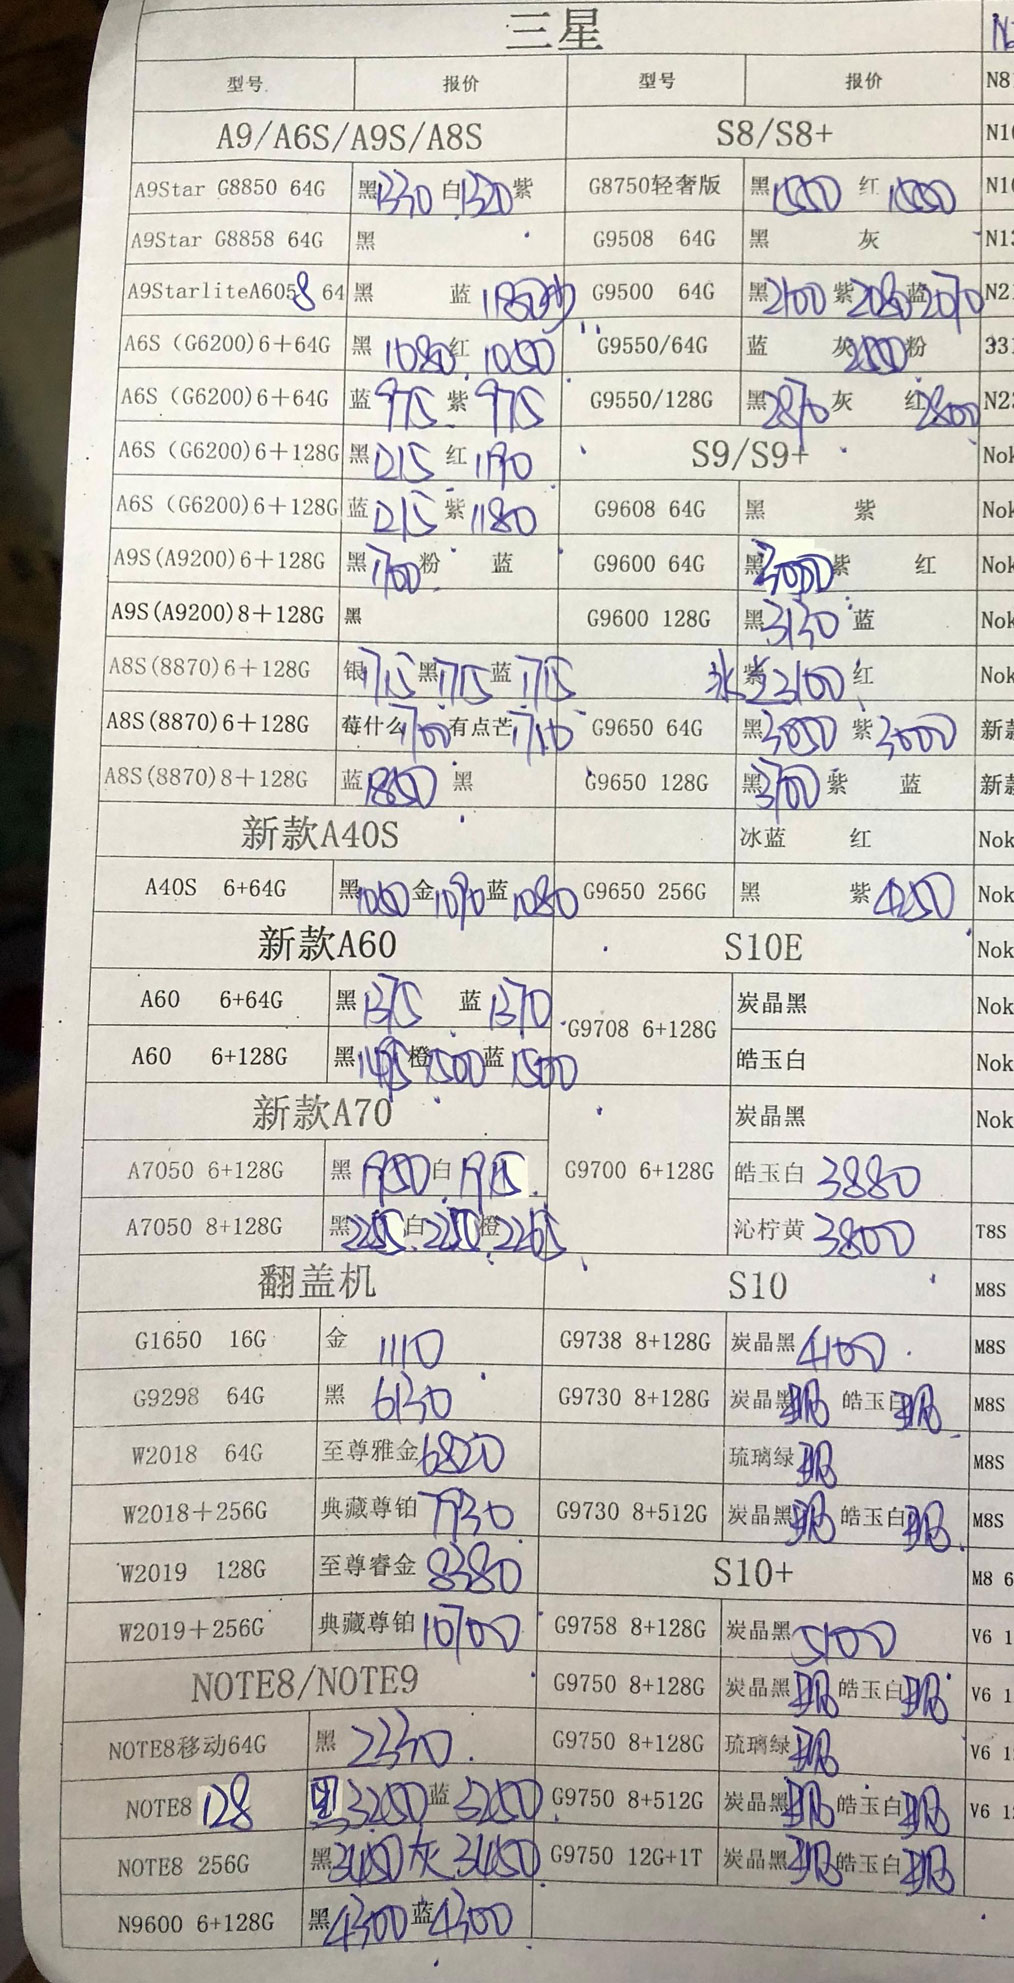 三星
型号 报价 型号 报价 N8
A9/A6S/A9S/A8S S8/S8+ N1
A9Star G8850 64G 黑1330 白1320 紫 G8750轻奢版 黑1550 红1550 N1
A9Star G8858 64G 黑 G9508 64G 黑 灰 N13
A9StarliteA6058 64 黑 蓝1180 G9500 64G 黑2100 紫2080 蓝2070 N2
A6S (G6200)6+64G 黑1080 红1050 G9550/64G 蓝 灰 粉 33
A6S (G6200)6+64G 蓝975 紫975 G9550/128G 黑2870 灰 红2800 N2
A6S (G6200)6+128G 黑1215 红1190 S9/S9+ Nok
A6S (G6200)6+128G 蓝1215 紫1180 G9608 64G 黑 紫 Nok
A9S(A9200)6+128G 黑1700 粉 蓝 G9600 64G 黑3000 紫 红 Nok
A9S(A9200)8+128G 黑 G9600 128G 黑3130 蓝 Nok
A8S(8870)6+128G 银1715 黑1715 蓝1715 紫3100 红 Nok
A8S(8870)6+128G 莓什么1700 有点芒1710 G9650 64G 黑3050 紫3000 新款
A8S(8870)8+128G 蓝1850 黑 G9650 128G 黑3700 紫 蓝 新款
新款A40S 冰蓝 红 Nok
A40S 6+64G 黑1060 金1090 蓝1080 G9650 256G 黑 紫4250 Nok
新款A60 S10E Nok
A60 6+64G 黑1375 蓝1370 G9708 6+128G 炭晶黑 Nok
A60 6+128G 黑1495 橙1500 蓝1500 皓玉白 Nok
新款A70 炭晶黑 Nok
A7050 6+128G 黑1950 白1915 G9700 6+128G 皓玉白 3880
A7050 8+128G 黑2255 白2250 橙2265 沁柠黄 3800 T8S
翻盖机 S10 M8S
G1650 16G 金 1110 G9738 8+128G 炭晶黑4100 M8S
G9298 64G 黑 6130 G9730 8+128G 炭晶黑 皓玉白 M8S
W2018 64G 至尊雅金6820 琉璃绿 M8S
W2018+256G 典藏尊铂7930 G9730 8+512G 炭晶黑 皓玉白 M8S
W2019 128G 至尊睿金8380 S10+ M8 6
W2019+256G 典藏尊铂10700 G9758 8+128G 炭晶黑5100 V6 1
NOTE8/NOTE9 G9750 8+128G 炭晶黑 皓玉白 V6 1
NOTE8移动64G 黑 2330 G9750 8+128G 琉璃绿 V6 1
NOTE8 128 黑3250 蓝3250 G9750 8+512G 炭晶黑 皓玉白 V6 1
NOTE8 256G 黑3450 灰3450 G9750 12G+1T 炭晶黑 皓玉白
N9600 6+128G 黑4300 蓝4300